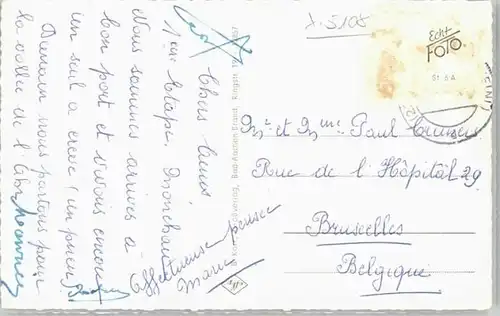 Chers amis
1ère Etape. Monschau
Nous sommes arrivés à
bon port et vivons encore
un seul a crevé (un pneu)
Demain nous partons pour
la vallée de l'Ahr
Affectueuse pensée
Marie
Echt
FOTO
St. 6 A
Mr et Mme Paul
Rue de l'Hôpital 29
Bruxelles
Belgique